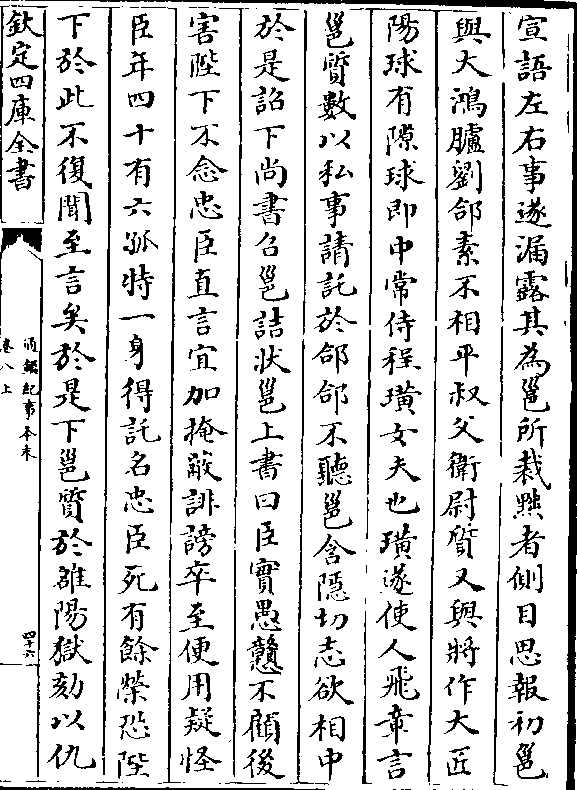 宣語左右事遂漏露其為邕所裁黜者側目思報初邕
與大鴻臚劉郃素不相平叔父衛尉質又與將作大匠
陽球有隙球即中常侍程璜女夫也璜遂使人飛章言
邕質數以私事請託於郃郃不聽邕含隱切志欲相中
於是詔下尚書召邕詰狀邕上書曰臣實愚戇不顧後
害陛下不念忠臣直言宜加掩蔽誹謗卒至便用疑怪
臣年四十有六孤特一身得託名忠臣死有餘榮恐陛
下於此不復聞至言矣於是下邕質於雒陽獄劾以仇
欽定四庫全書
通鑑紀事本末
卷八上
四十六